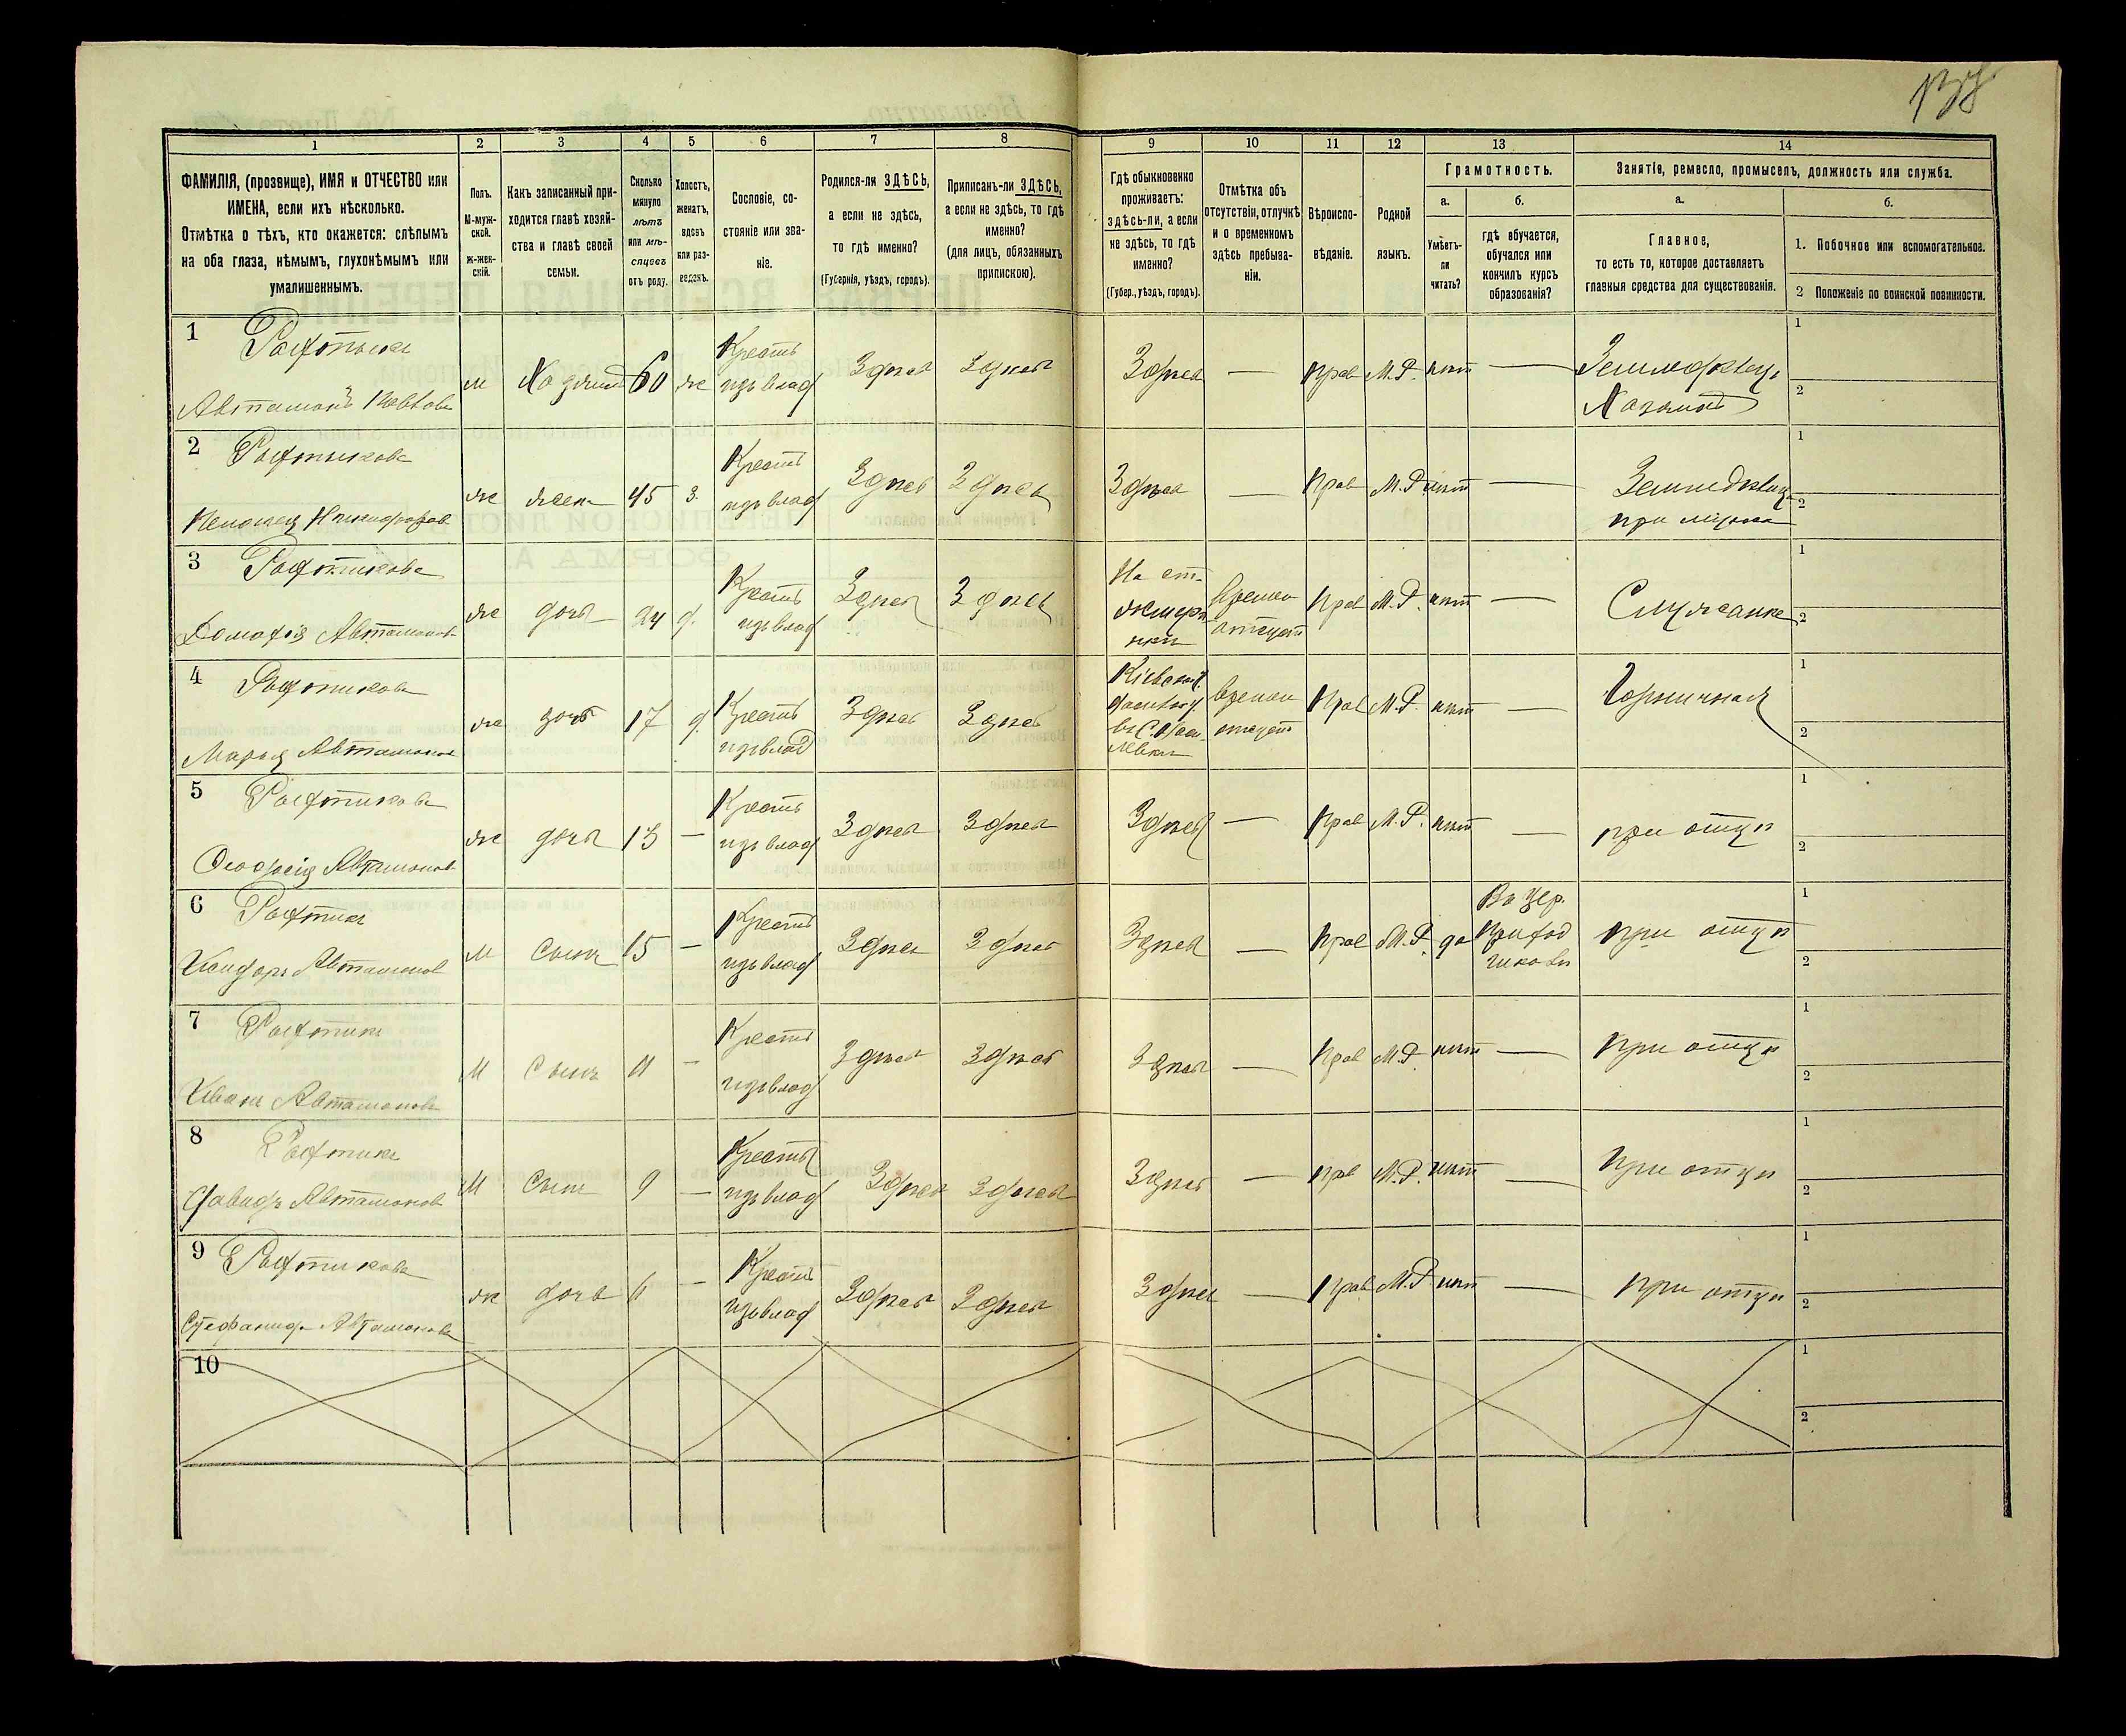 137
1
2
3
4
5
6
7
8
9
10
11
12
13
14
ФАМИЛІЯ, (прозвище), ИМЯ и ОТЧЕСТВО или
ИМЕНА, если ихъ нѣсколько.
Отмѣтка о тѣхъ, кто окажется: слѣпымъ
на оба глаза, нѣмымъ, глухонѣмымъ или
умалишеннымъ.
Полъ.
М-муж-
ской.
Ж-жен-
скій.
Какъ записанный при-
ходится главѣ хозяй-
ства и главѣ своей
семьи.
Сколько
минуло
лѣтъ
или мѣ-
сяцевъ
отъ роду.
Холостъ,
женатъ,
вдовъ
или раз-
веденъ.
Сословіе, со-
стояніе или зва-
ніе.
Родился-ли ЗДѢСЬ,
а если не здѣсь,
то гдѣ именно?
(Губернія, уѣздъ, городъ).
Приписанъ-ли ЗДѢСЬ,
а если не здѣсь, то гдѣ
именно?
(для лицъ, обязанныхъ
припискою).
Гдѣ обыкновенно
проживаетъ:
здѣсь-ли, а если
не здѣсь, то гдѣ
именно?
(Губер., уѣздъ, городъ).
Отмѣтка объ
отсутствіи, отлучкѣ
и о временномъ
здѣсь пребыва-
ніи.
Вѣроиспо-
вѣданіе.
Родной
языкъ.
Грамотность.
а.
Умѣетъ-
ли
читать?
б.
гдѣ обучается,
обучался или
кончилъ курсъ
образованія?
Занятіе, ремесло, промыселъ, должность или служба.
а.
Главное,
то есть то, которое доставляетъ
главныя средства для существованія.
б.
1. Побочное или вспомогательное.
2 Положеніе по воинской повинности.
1
м Хозяинъ 60 ж
Крестъ
изъ влад
Здѣсь Здѣсь Здѣсь — прав М.Р. нѣт —
Земледѣлецъ
Хозяинъ
1
2
2
ж жена 45 з.
Крестъ
изъ влад
Здѣсь Здѣсь Здѣсь — Прав М.Р нѣт —
Земледѣлец
при мужѣ
1
2
3
Домафія Автамонов
ж дочь 24 д.
Крестъ
изъ влад
Здѣсь Здѣсь
На ст.
Времен
отсут
Прав М.Р. нѣт —
Служанка
1
2
4
Марія Автамонов
ж дочь 17 д.
Крестъ
изъ влад
Здѣсь Здѣсь
времен
отсут
Прав М.Р. нѣт —
Горничная
1
2
5
Феодосія Автамонов
ж дочь 13 —
Крестъ
изъ влад
Здѣсь Здѣсь Здѣсь — Прав М.Р. нѣт — при отцѣ
1
2
6
Исидоръ Автамонов
м Сынъ 15 —
Крестъ
изъ влад
Здѣсь Здѣсь Здѣсь — прав М.Р. да
Въ цер.
приход
при отцѣ
1
2
7
Иванъ Автамонов
м Сынъ 11 —
Крестъ
изъ влад
Здѣсь Здѣсь Здѣсь — Прав М.Р. нѣт — При отцѣ
1
2
8
Давидъ Автамонов
м Сынъ 9 —
Крестъ
изъ влад
Здѣсь Здѣсь Здѣсь — прв М.Р. нѣт — При отцѣ
1
2
9
Стефанид Автамонов
ж дочь 6 —
Крестъ
изъ влад
Здѣсь Здѣсь Здѣсь — Прав М.Р. нѣт — При отцѣ
1
2
10
1
2